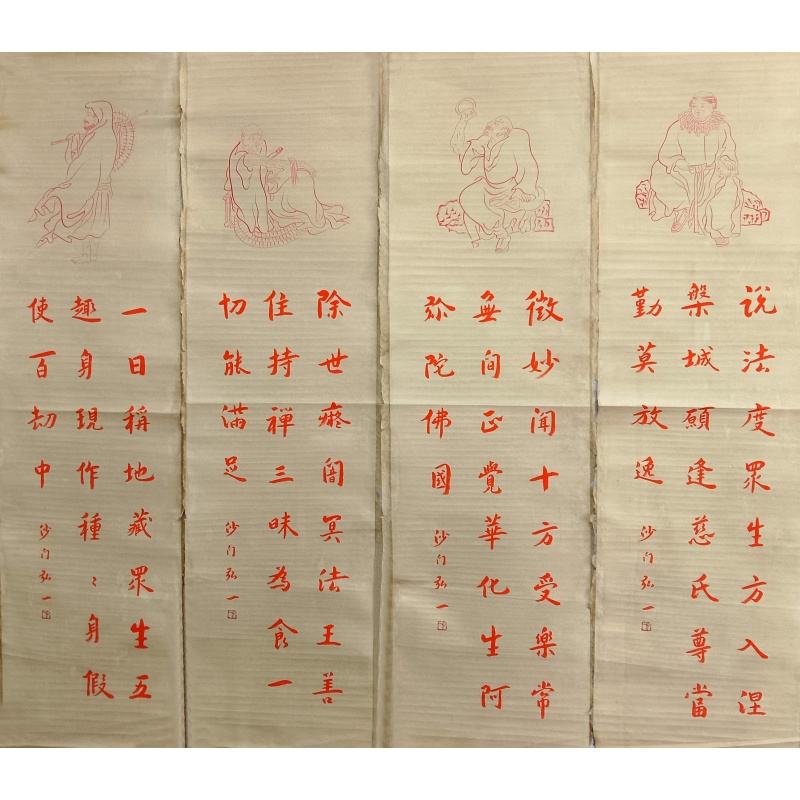 说法度眾生方入涅
槃城願逢慈氏尊當
勤莫放逸
沙门弘一
微妙聞十方受樂常
無间正覺華化生阿
弥陀佛國
沙门弘一
除世癡闇冥法王善
住持禅三昧為食一
切能滿足
沙门弘一
一日稱地藏眾生五
趣身現作種〻身假
使百劫中
沙门弘一